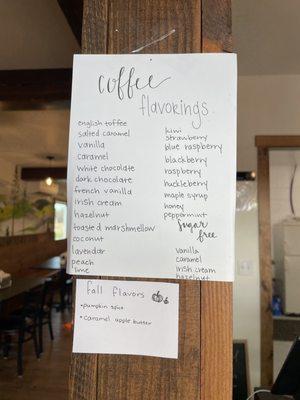 coffee
flavorings.
english toffee
salted caramel
vanilla
caramel
white chocolate
dark chocolate
french vanilla
irish cream
hazelnut
toasted marshmallow
coconut
lavender
peach
lime
kiwi
strawberry
blue raspberry
blackberry
raspberry
huckleberry
maple syrup
honey
peppermint
Sugar
free
vanilla
caramel
irish cream
hazelnut
fall flavors
• pumpkin spice
• caramel apple butter